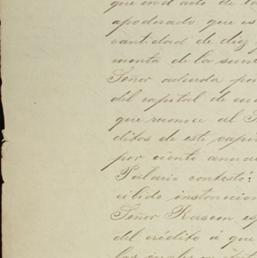 que en el acto de la
apoderado, que es
cantidad de diez
menta de la suma
Señor adeuda por
del capital de
que reconoce al
ditos de este capi
por ciento anual
Palacio contestó:
cibido instruccion
Señor Rascon es
del crédito á que